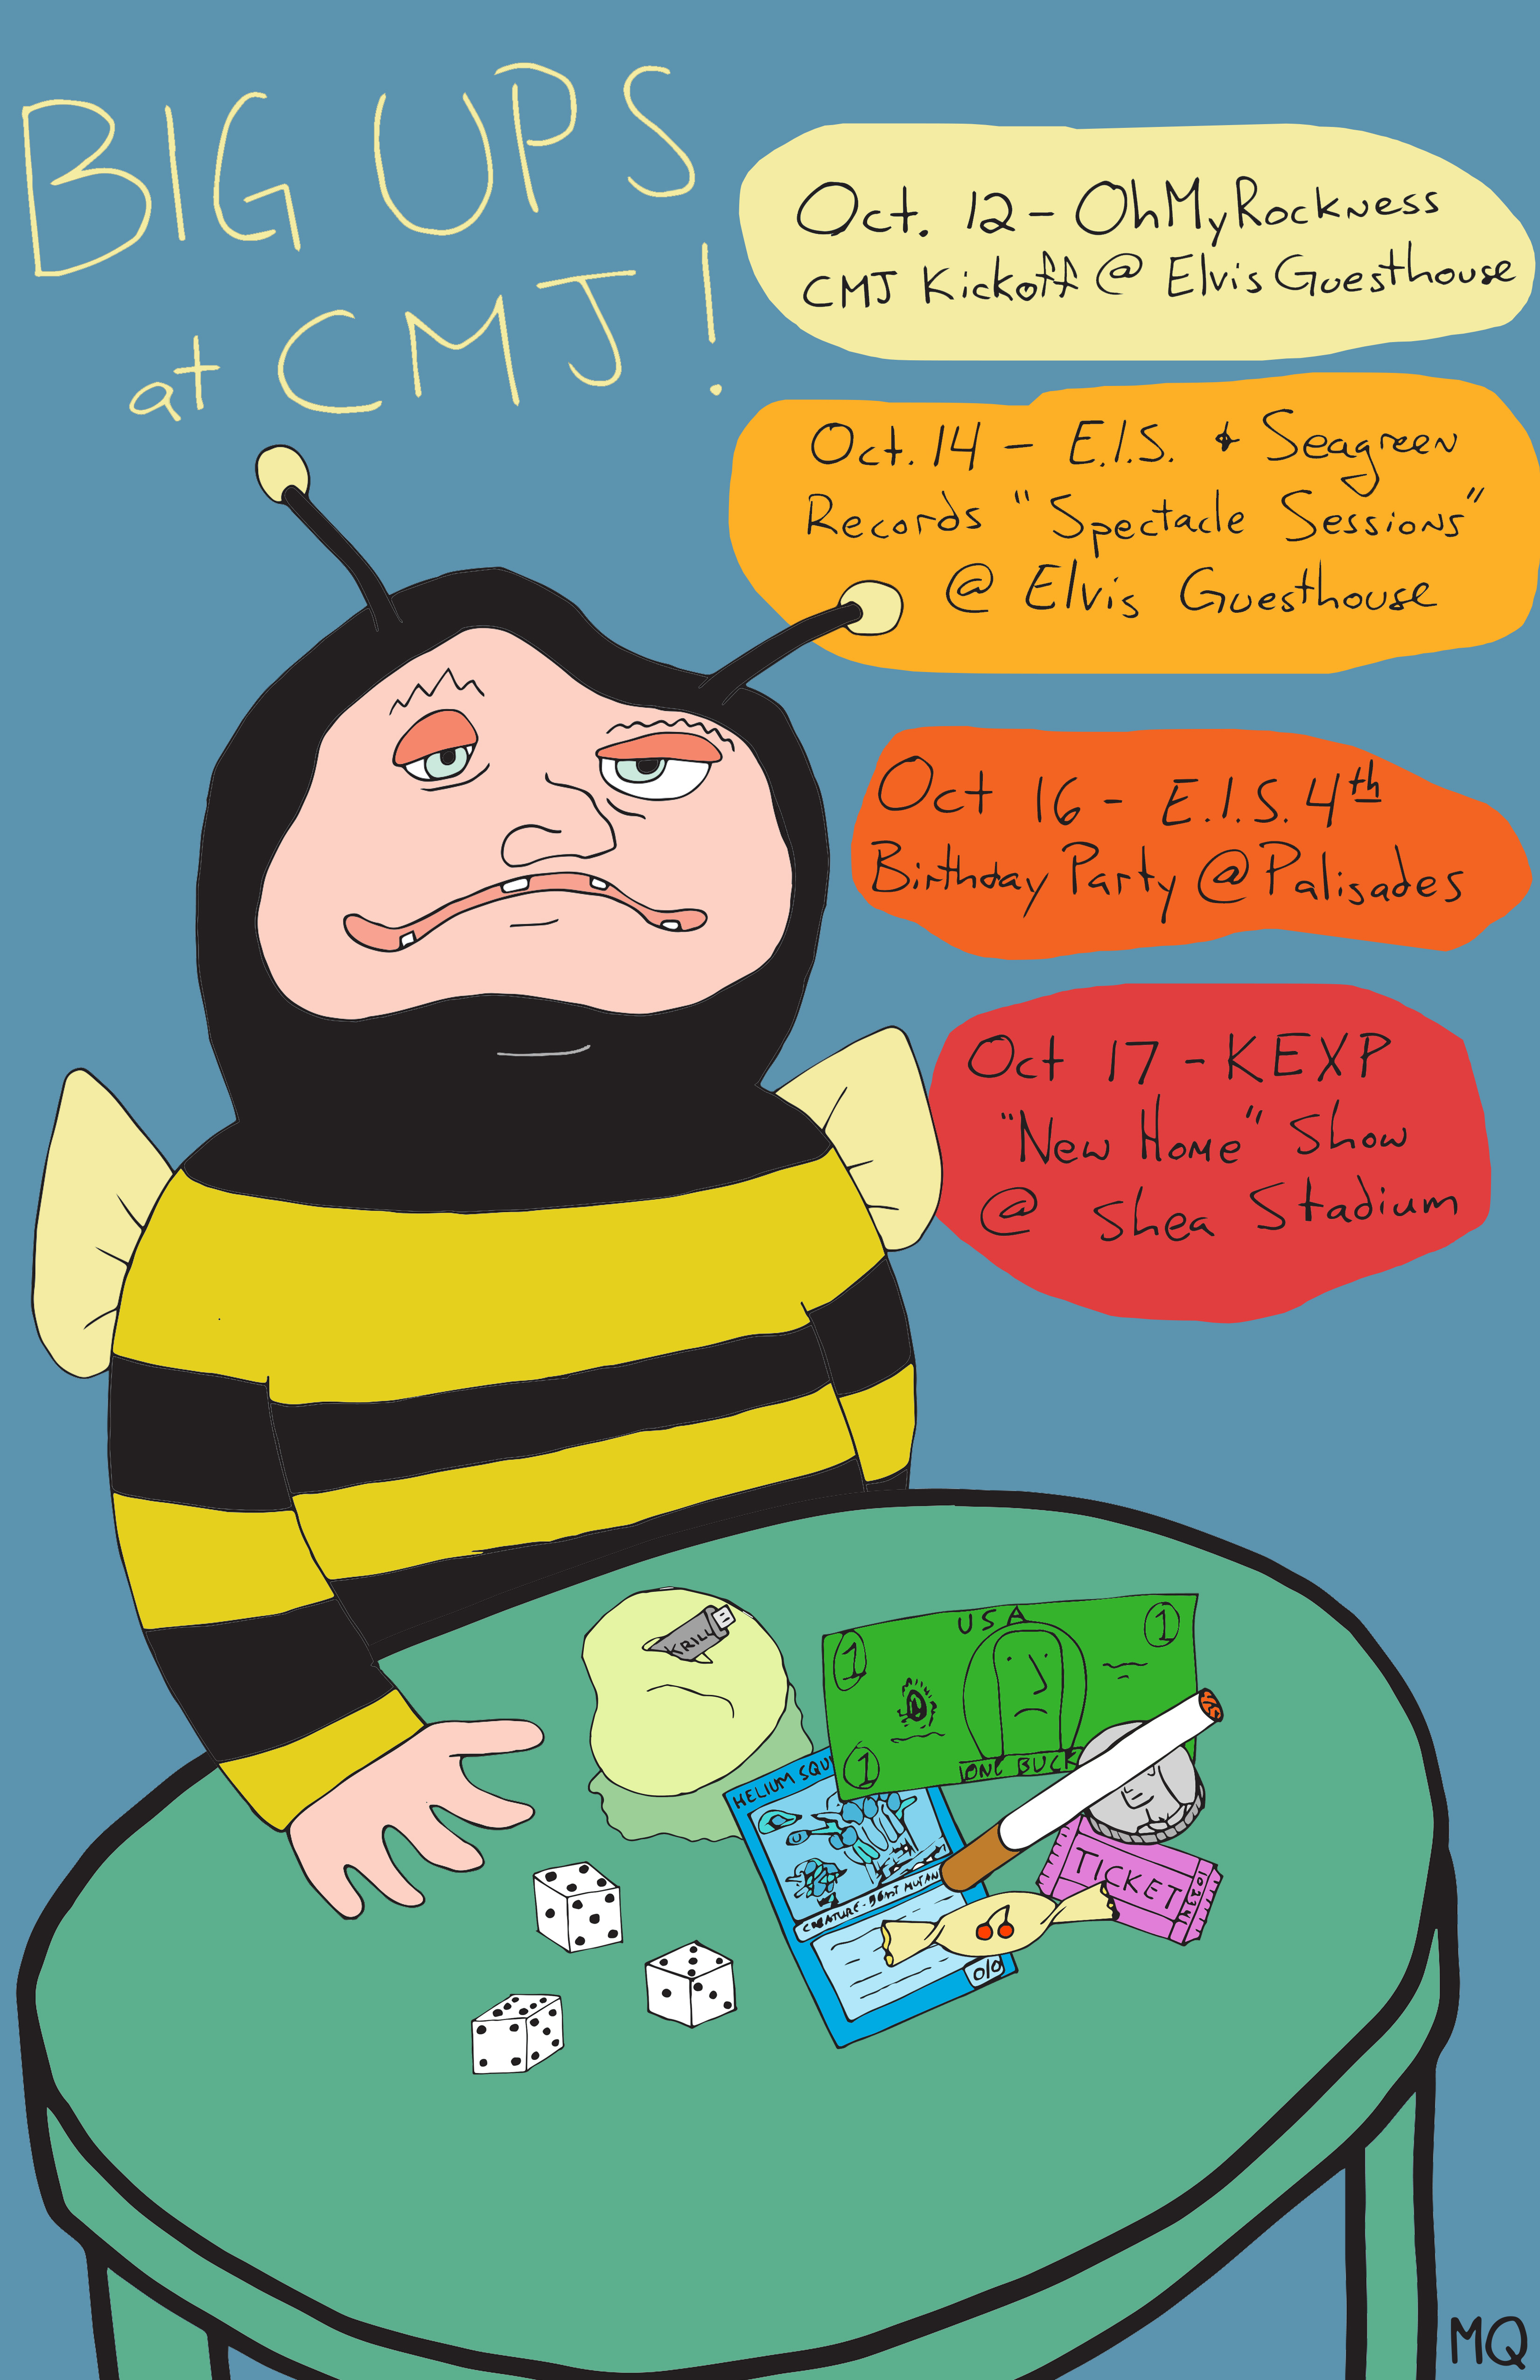 BIG UPS
at CMJ!
Oct. 12 - OhMyRockness
CMJ Kickoff @ Elvis Guesthouse
Oct. 14 - E.I.S. + Seagreen
Records "Spectacle Sessions"
@ Elvis Guesthouse
Oct 16 - E.I.S. 4th
Birthday Party @ Palisades
Oct 17 - KEXP
"New Home" Show
@ Shea Stadium
KRILL
USA
1
1
1
ONE BUCK
HELIUM SQU
CREATURE -
0/0
TICKET
MQ